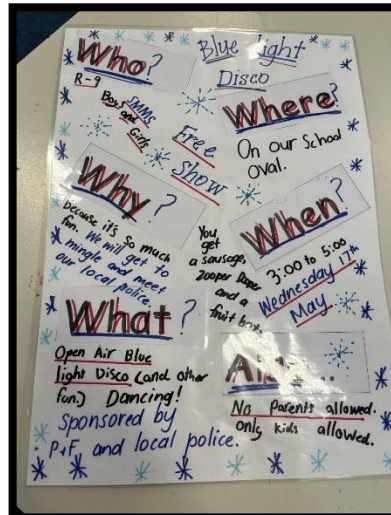 Blue light
Disco
Who?
R-9
SMMS
Boys and
Girls
Free
Show
Where?
On our School
oval.
Why?
Because it's so much
fun. We will get to
mingle and meet
our local police.
You
get
a sausage,
zooper Dooper
and a
fruit box.
When?
3:00 to 5:00
Wednesday 17th
May.
What?
Open Air Blue
light Disco (and other
fun.) Dancing!
sponsored by
P+F and local police.
No Parents allowed.
only kids allowed.